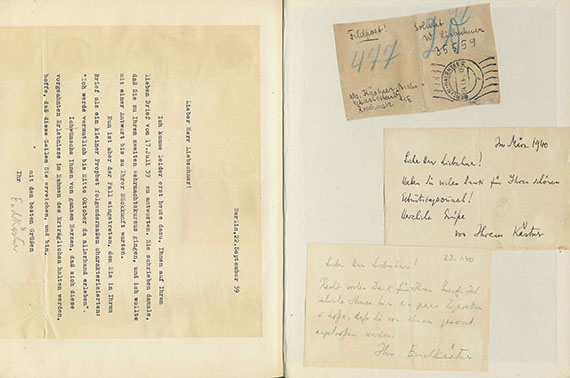 Berlin, 22.September 39
Lieber Herr Liebchner!
Ich komme leider erst heute dazu, Ihnen auf Ihren
lieben Brief vom 17.Juli 39 zu antworten. Sie schrieben damals,
daß Sie zu Ihrem zweiten Wehrmachtskursus gingen, und ich wollte
mit einer Antwort bis zu Ihrer Rückkunft warten.
Nun ist aber der Fall eingetreten, den Sie in Ihrem
Brief als ein kleiner Prophet folgendermaßen charakterisierten:
"Ich werde vermutlich bis Mitte Oktober da allerhand erleben"
Ich wünsche Ihnen von ganzem Herzen, daß sich diese
vorgeahnten Erlebnisse im Rahmen des Erträglichen halten werden,
hoffe, daß diese Zeilen Sie erreichen, und bin,
mit den besten Grüßen
Ihr
Feldpost!
Soldat
35559
477
Im März 1940
Lieber Herr Liebchner!
Haben Sie vielen Dank für Ihren schönen
Geburtstagswunsch!
Herzliche Grüße
von Ihrem Kästner
23. 1. 40
Lieber Herr Liebchner!
vielen Dank für Ihren Brief. Ich
Ihnen hier ein paar Zigaretten
hoffe, daß Sie von
werden.
Ihr Erich Kästner